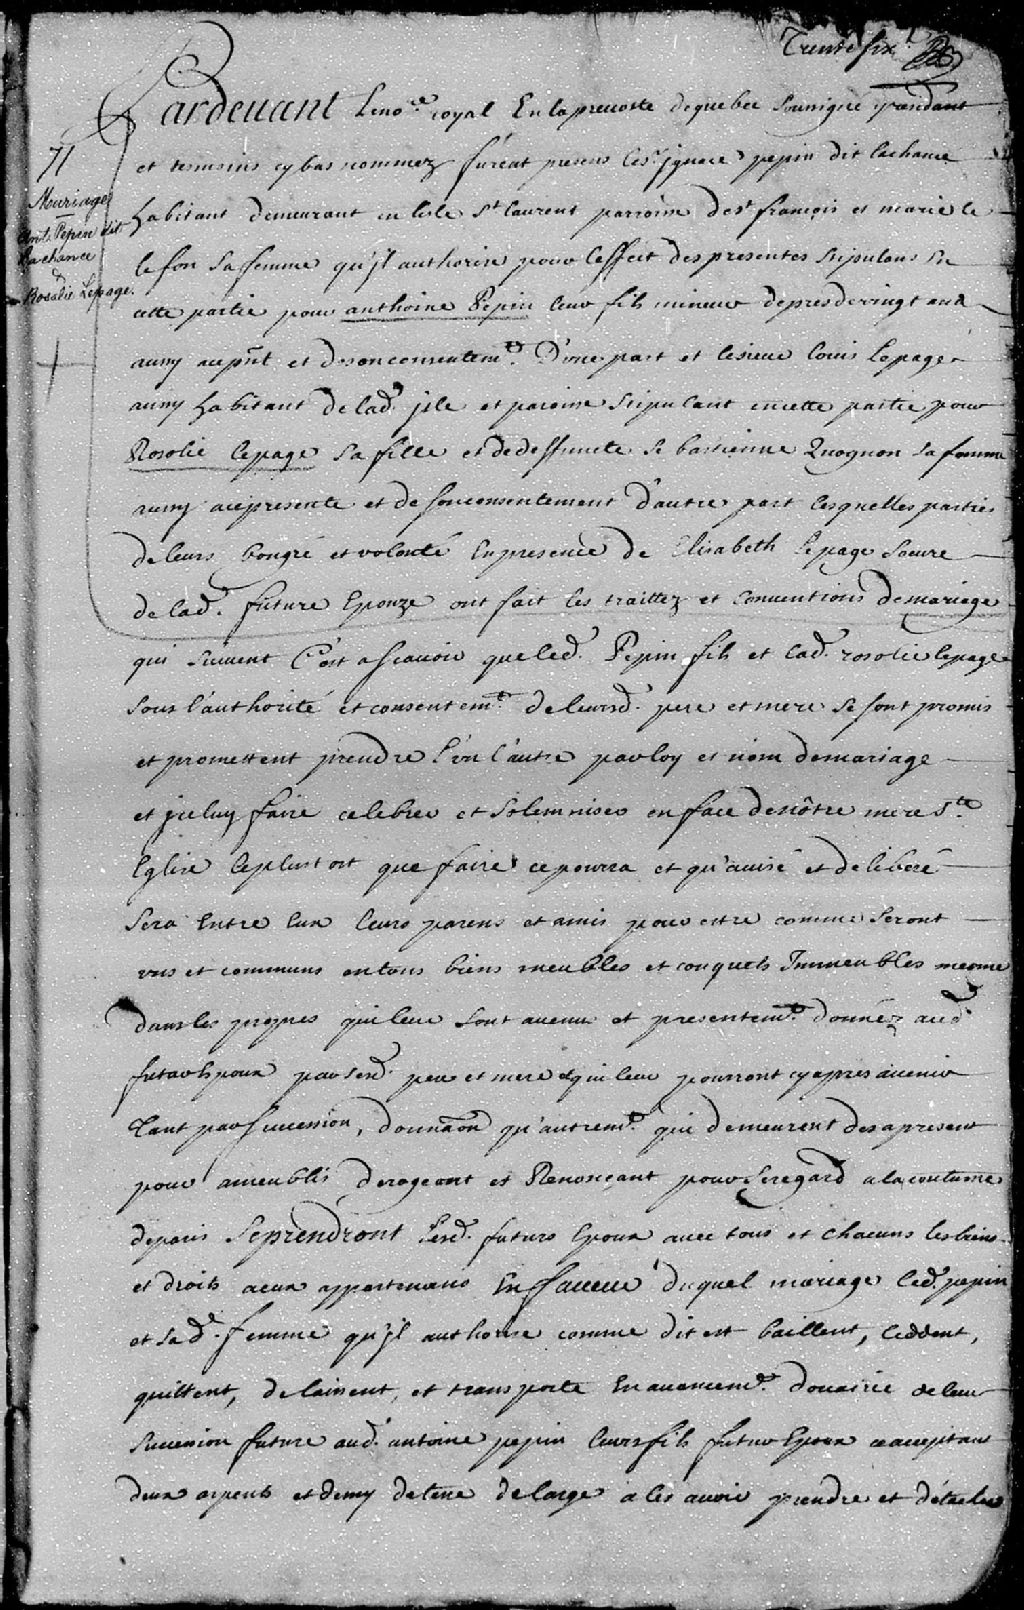 Trente six
Pardevant Le no.re royal En la prevosté de quebec Soussigné y residant
et temoins cy bas nommez furent presens Le sr. jgnace pepin dit lachance
71
Mariage
Ant. Pepin dit
Lachance
&
Rosalie Lepage.
habitant demeurant en lisle st laurent parroisse de st. françois et marie le
lefon sa femme qu'jl authorise pour l'effect des presentes stipulans En
cette partie pour anthoine Pepin leur fils mineur de pres de vingt ans
aussy au pnt et de son consentemt. D'une part et le sieur louis Lepage
aussy habitant de lad. jsle et paroisse stipulant en cette partie pour
Rosolie lepage sa fille et de deffuncte sebastienne Quognon sa femme
aussy a ce presente et de son consentement d'autre part lesquelles parties
de leurs bongré et volonté En presence de Elisabeth Lepage soeure
de lad. future Epouze ont fait les traittez et Conventions de mariage
qui suivent C'est ascavoir que led. Pepin fils et lad. rosolie lepage
sous l'authorité et consentemt. de leursd. pere et mere se sont promis
et promettent prendre l'un l'autre par loy et nom de mariage
et jceluy faire celebrer et solemniser en face de nôtre mere ste.
Eglise le plustost que faire ce pourra et qu'avisé et deliberé
sera Entre Eux leurs parens et amis pour estre comme seront
uns et communs en tous biens meubles et conquets Immeubles mesme
dans les propres qui leur sont avenu et presentemt. donnéz aud.
futur Epoux par sesd. pere et mere et qui leur pourront cy apres avenir
tant par succession, donnaon qu'autremt. qui demeurent des apresent
pour ameublis derogeant et Renonçant pour ce regard a la coutume
de paris Se prendront lesd. futurs Epoux avec tous et chacuns les biens
et droits a eux appartenans En faveur duquel mariage led. pepin
et sad. femme qu'jl authorise comme dit est baillent, Ceddent,
quittent, delaissent, et transporte En avancemt. d'hoirie de leur
succession future aud. antoine pepin leurs fils futur Epoux ce acceptant
deux arpents et demy de terre de large a les avoir prendre et détacher